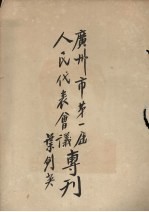 廣州市第一屆
人民代表會議專刊
葉劍英